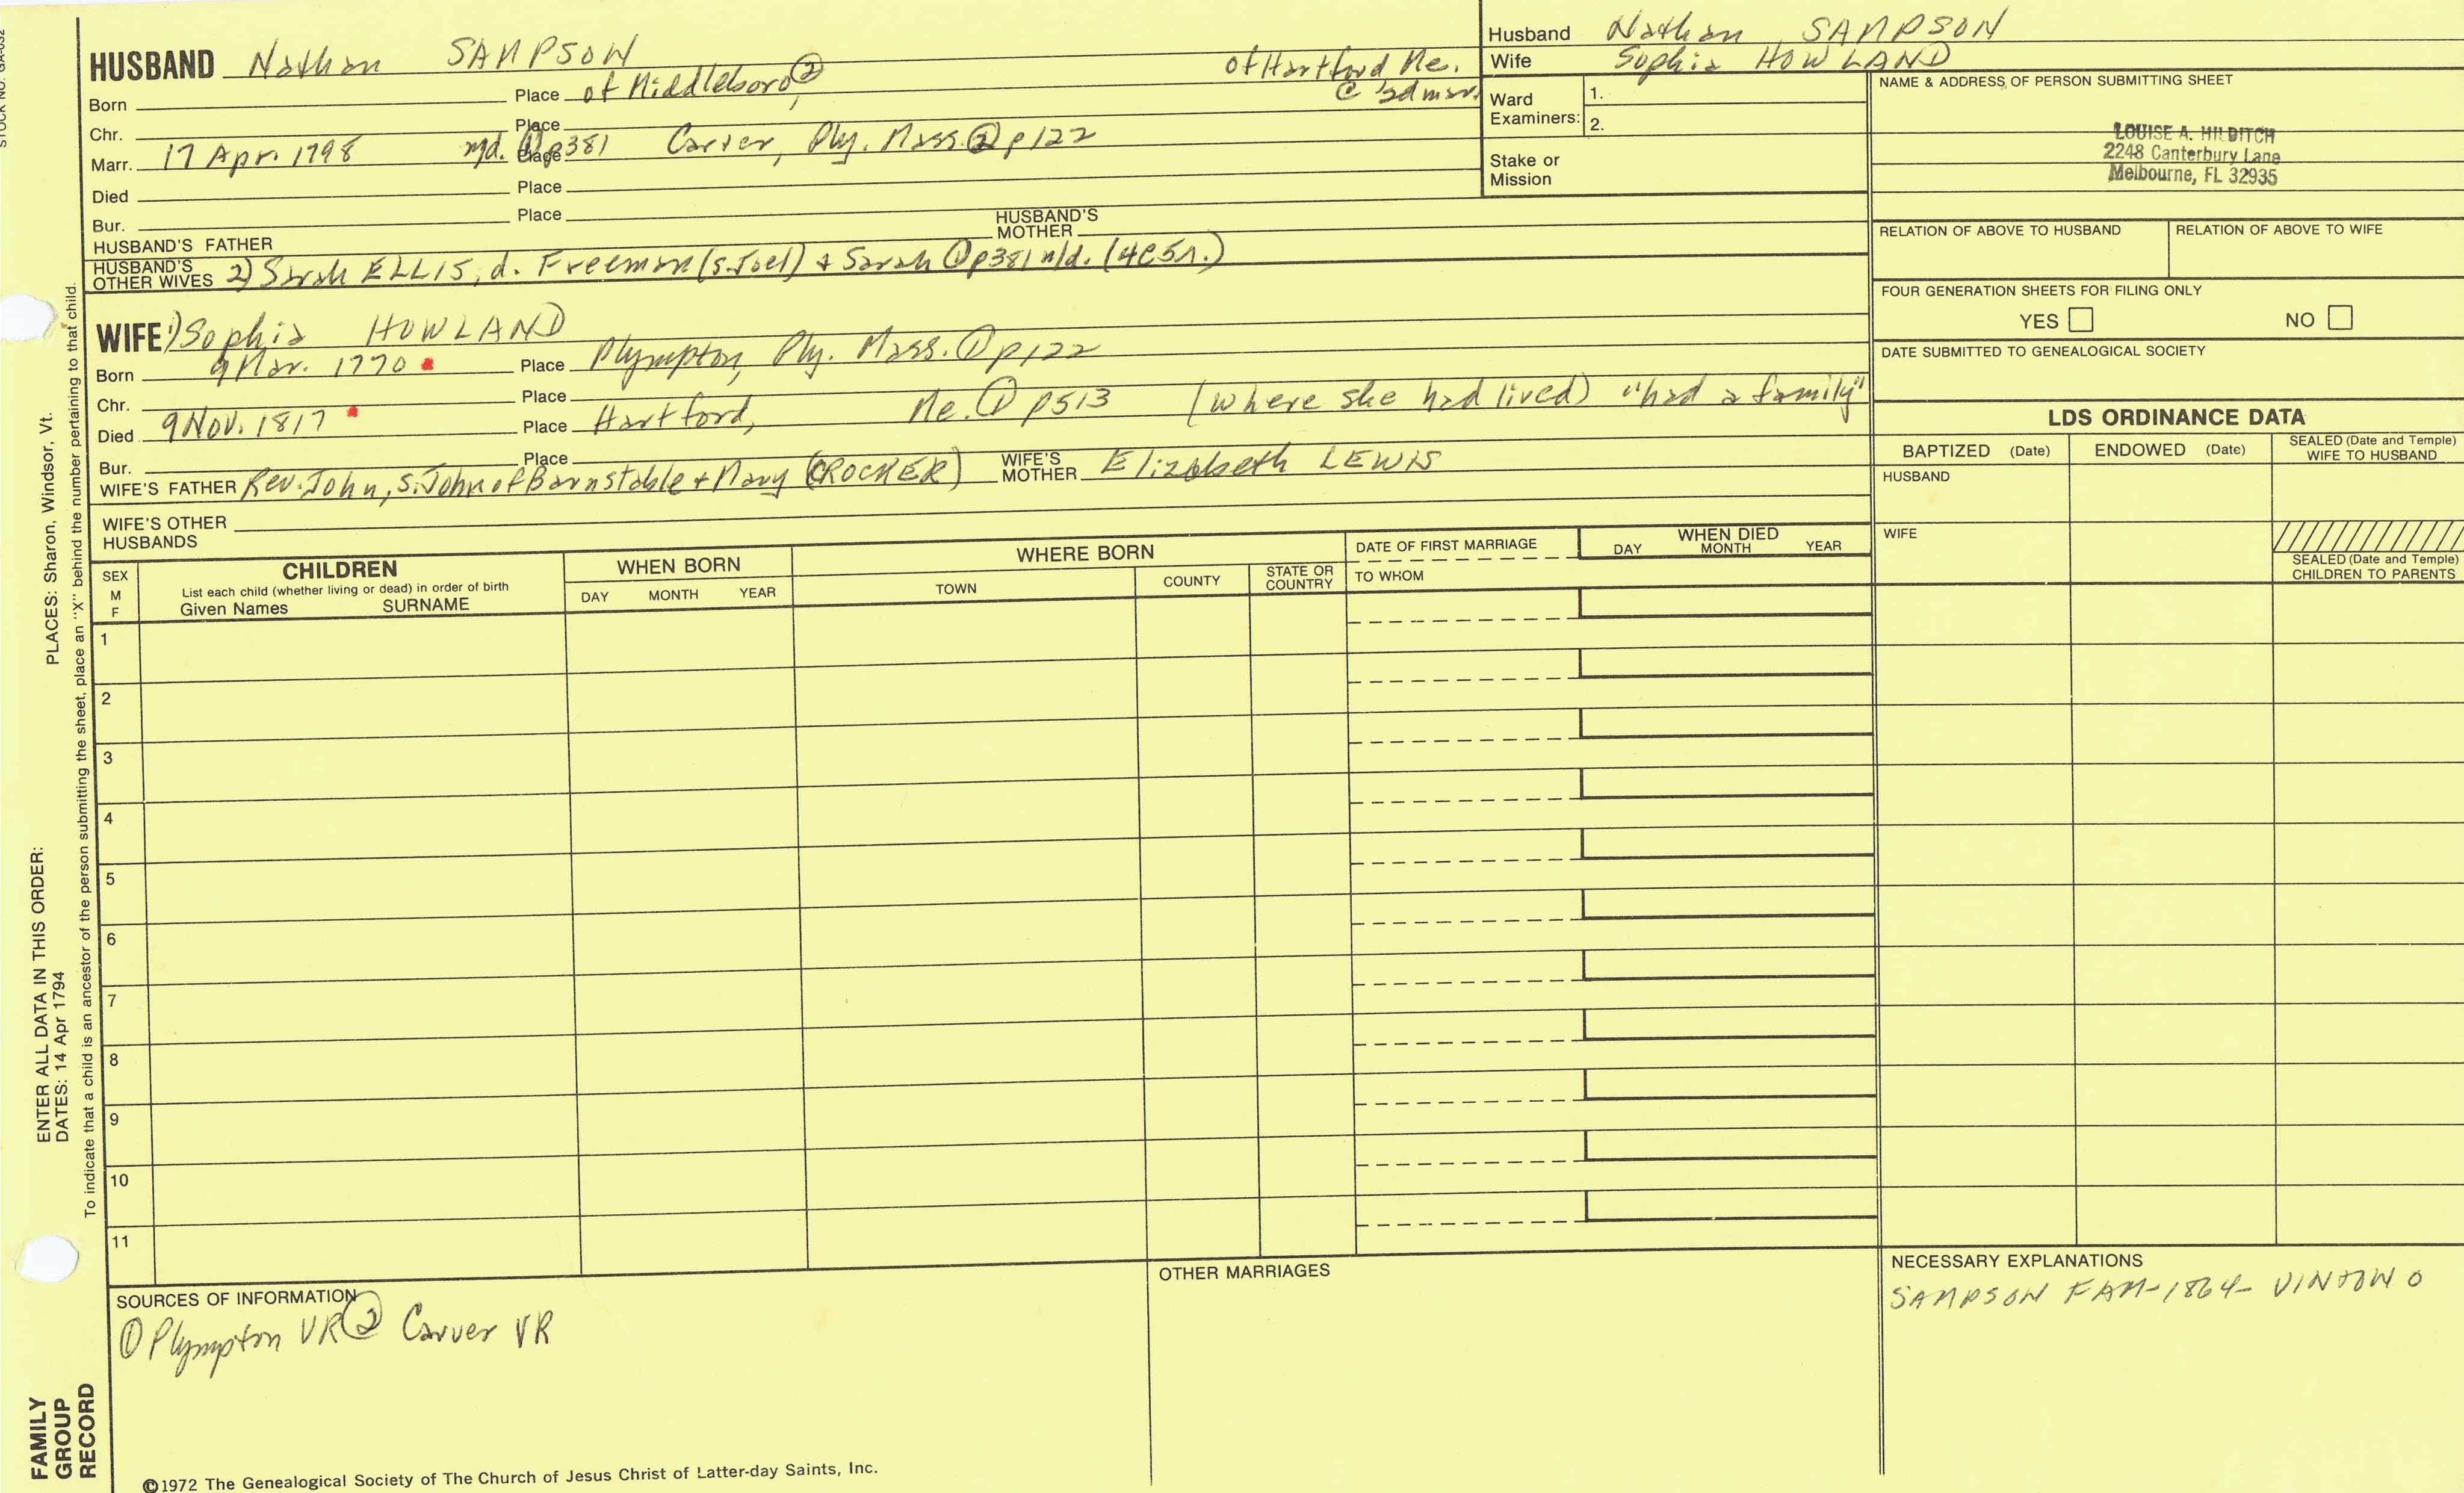 STOCK NO. GA-032
HUSBAND Nathan SAMPSON
Born Place of Middleboro ②, of Hartford, Me. @ 2d marr.
Chr. Place
Marr. 17 Apr. 1798 n/d. ① p381 Place Carver, Ply. Mass. ② p122
Died Place
Bur. Place
HUSBAND'S FATHER HUSBAND'S MOTHER
HUSBAND'S OTHER WIVES 2) Sarah ELLIS, d. Freeman (s. Joel) + Sarah ① p381 n/d. (4C51.)
WIFE 1) Sophia HOWLAND
Born 9 Mar. 1770 Place Plympton, Ply. Mass. ① p122
Chr. Place
Died 9 Nov. 1817 Place Hartford, Me. ① p513 (where she had lived) "had a family"
Bur. Place
WIFE'S FATHER Rev. John, s. John of Barnstable + Mary (CROCKER) WIFE'S MOTHER Elizabeth LEWIS
WIFE'S OTHER HUSBANDS
Husband Nathan SAMPSON
Wife Sophia HOWLAND
Ward Examiners: 1.
2.
Stake or Mission
NAME & ADDRESS OF PERSON SUBMITTING SHEET
LOUISE A. HILDITCH
2248 Canterbury Lane
Melbourne, FL 32935
RELATION OF ABOVE TO HUSBAND RELATION OF ABOVE TO WIFE
FOUR GENERATION SHEETS FOR FILING ONLY
YES NO
DATE SUBMITTED TO GENEALOGICAL SOCIETY
LDS ORDINANCE DATA
BAPTIZED (Date) ENDOWED (Date) SEALED (Date and Temple) WIFE TO HUSBAND
HUSBAND
WIFE
SEALED (Date and Temple) CHILDREN TO PARENTS
SEX M F
CHILDREN
List each child (whether living or dead) in order of birth
Given Names SURNAME
WHEN BORN
DAY MONTH YEAR
WHERE BORN
TOWN COUNTY STATE OR COUNTRY
DATE OF FIRST MARRIAGE
TO WHOM
WHEN DIED
DAY MONTH YEAR
1
2
3
4
5
6
7
8
9
10
11
SOURCES OF INFORMATION
① Plympton VR ② Carver VR
OTHER MARRIAGES
NECESSARY EXPLANATIONS
SAMPSON FAM-1864-
©1972 The Genealogical Society of The Church of Jesus Christ of Latter-day Saints, Inc.
FAMILY GROUP RECORD
ENTER ALL DATA IN THIS ORDER:
DATES: 14 Apr 1794
PLACES: Sharon, Windsor, Vt.
To indicate that a child is an ancestor of the person submitting the sheet, place an "X" behind the number pertaining to that child.